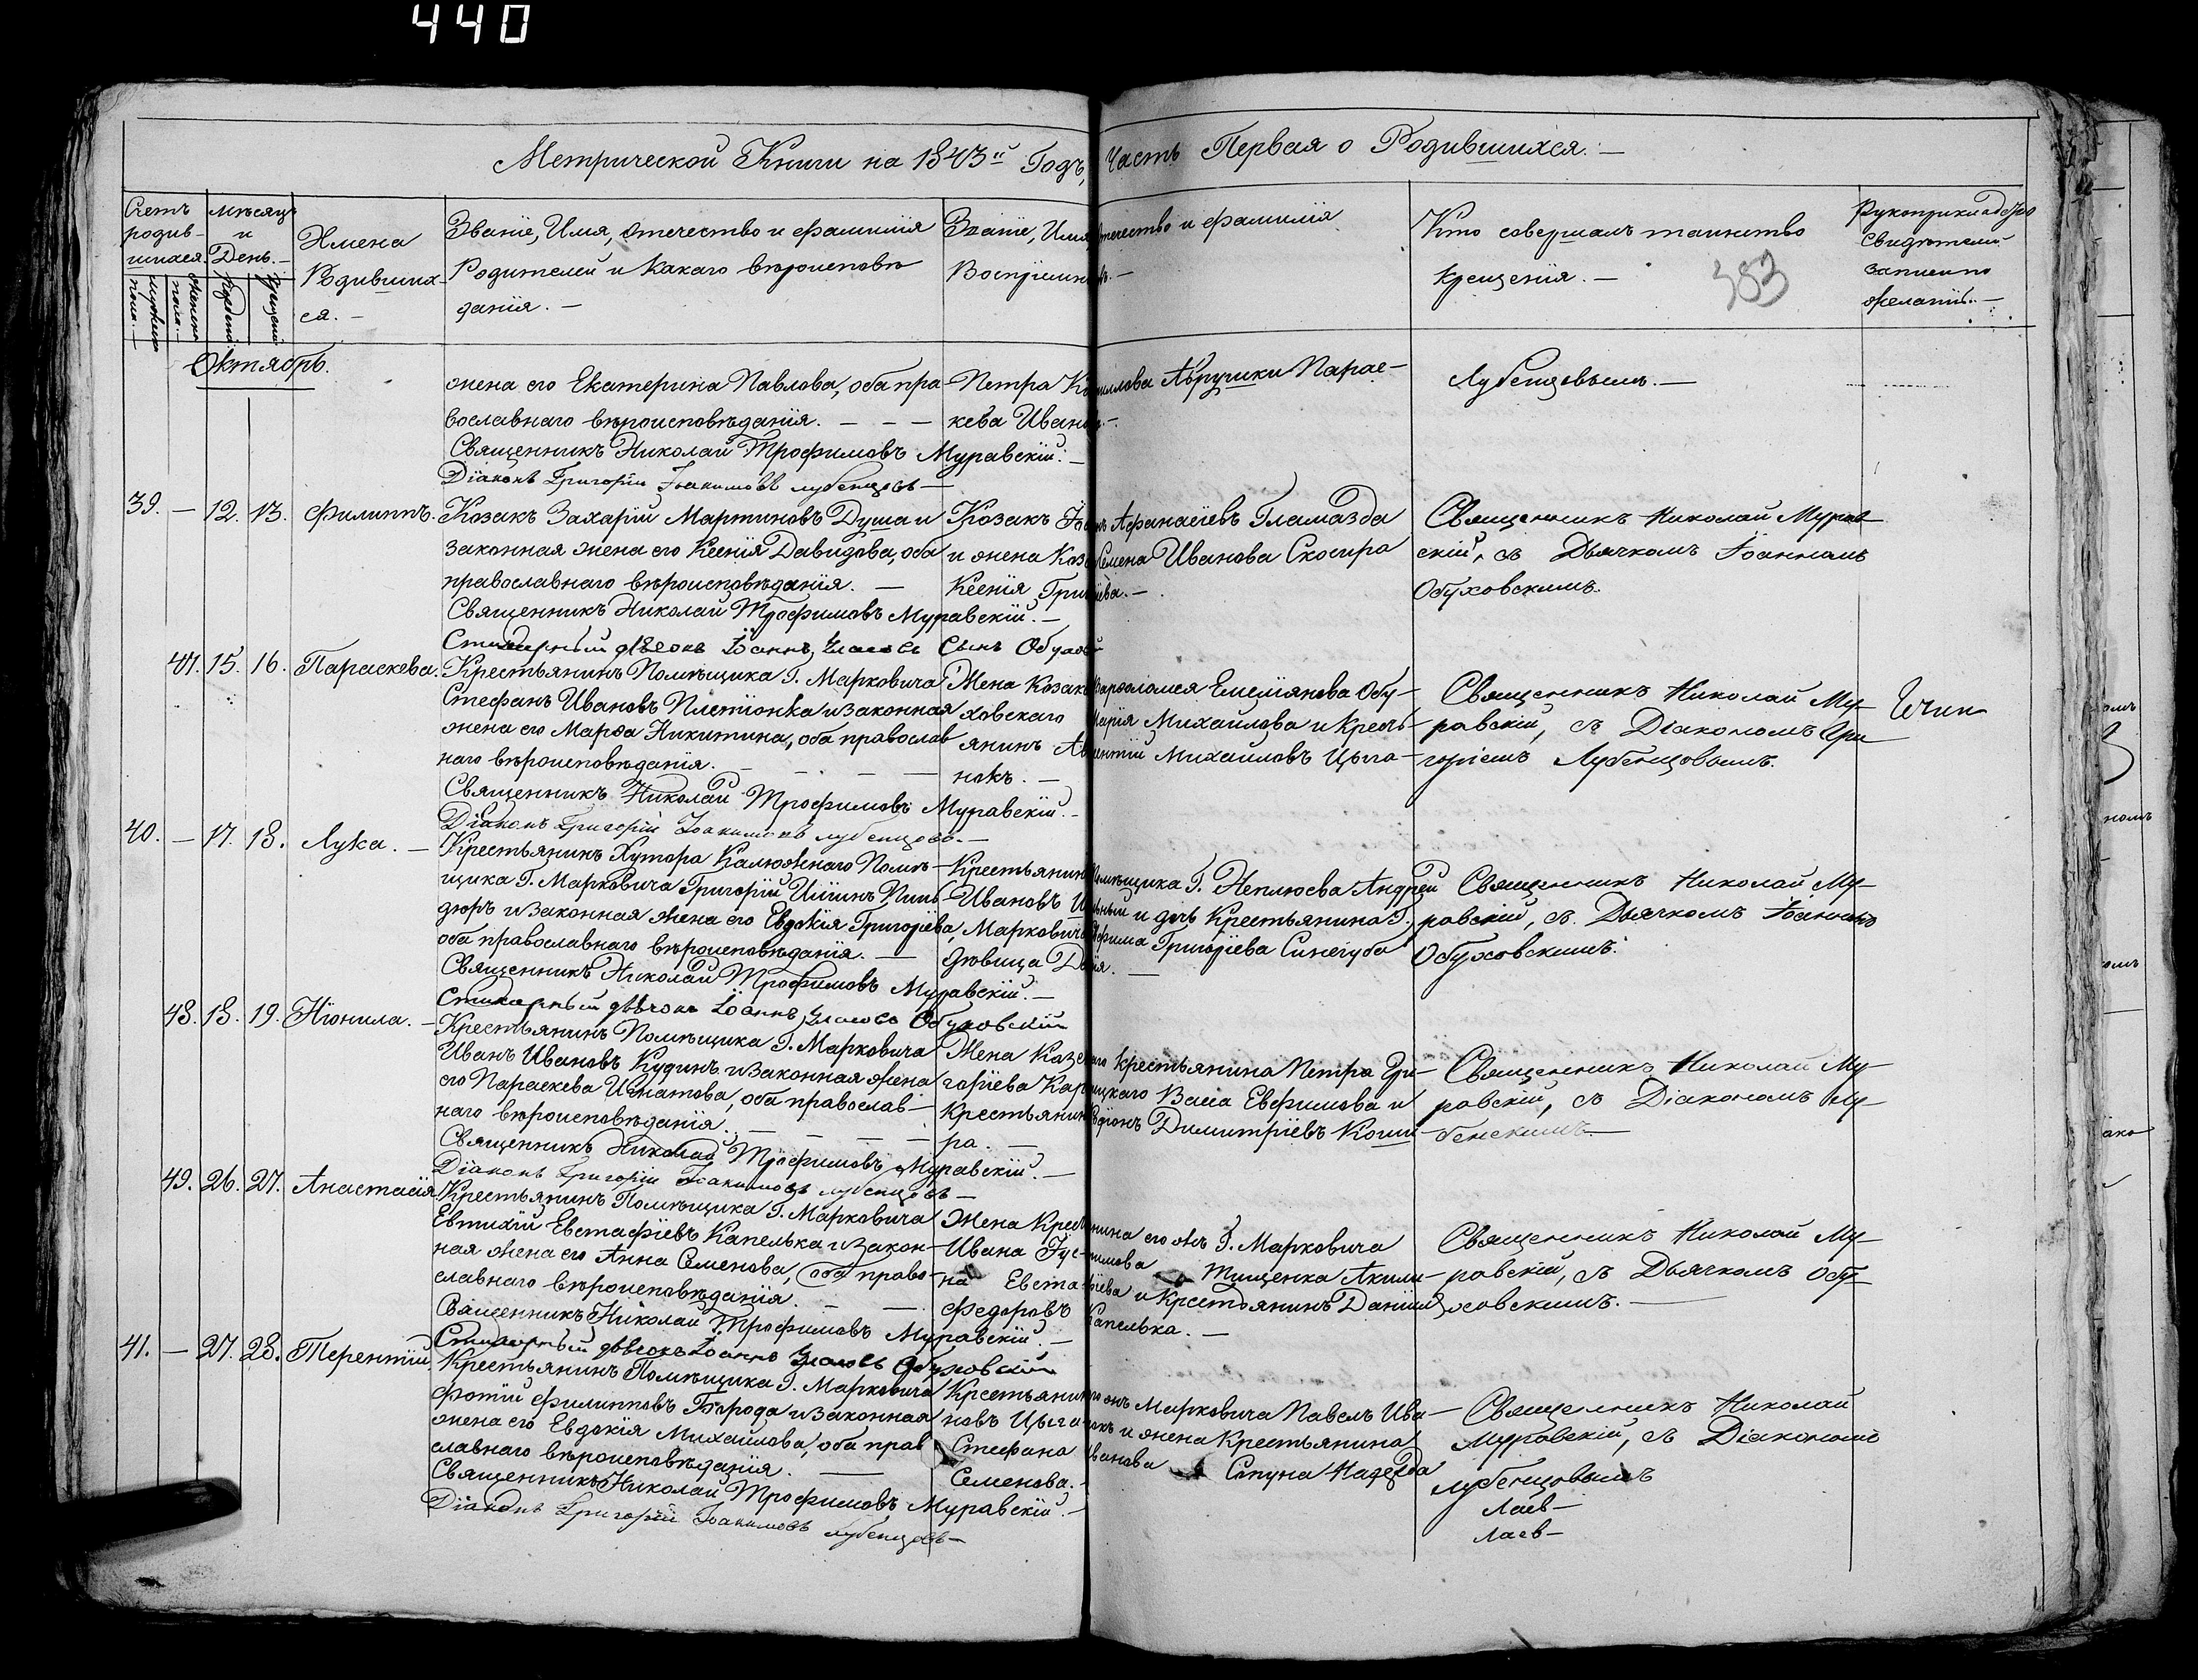 440
Метрической Книги на 1843й Годъ, Часть Первая о Родившихся. —
Счетъ родив-шихся.
мужеска пола. —
женска пола. —
Мѣсяцъ и День. —
Рожденія
Крещенія
Имена Родивших-ся. —
Званіе, Имя, отечество и фамилія
Родителей и какаго вѣроисповѣ
данія. —
Званіе, Имя, отечество и фамилія
Воспріемниковъ. —
Кто совершалъ таинство
Крещенія. —
383
Свидѣтелей
записи по
желанію. —
Октябрь.
жена его Екатерина Павлова, оба пра
вославнаго вѣроисповѣданія. — — —
Священникъ Николай Трофимовъ Муравскій. —
Діаконъ Григорій Іоакимовъ Лубенцовъ —
Петра Параскева Иванова. —
Лубенцовымъ. —
39. — 12. 13. Филиппъ.
Козакъ Захарій Мартиновъ Душа и
законная жена его Ксенія Давидова, оба
православнаго вѣроисповѣданія. —
Священникъ Николай Трофимовъ Муравскій. —
Стихарный дьячокъ Іоаннъ Власовъ Сынъ Обуховскій
Козакъ Іоаннъ Афанасіевъ Гламазда
и жена Козака Семена Ивановa Скосира
Ксенія Григоріева. —
Священникъ Николай Мурав
скій, съ Дьячкомъ Іоанномъ
Обуховскимъ.
47. 15. 16. Параскева.
Крестьянинъ Помѣщика Г. Марковича
Стефанъ Ивановъ Плетіонка и законная
жена его Марѳа Никитина, оба православ
наго вѣроисповѣданія. — — —
Священникъ Николай Трофимовъ Муравскій. —
Діаконъ Григорій Іоакимовъ Лубенцовъ. —
Жена Козака Варфоломея Емеліянова Обу-
ховскаго Марія Михайлова и Кресть-
янинъ Авксентій Михайловъ Цыга-
нокъ. —
Священникъ Николай Му-
равскій, съ Діакономъ Гри
горіемъ Лубенцовымъ.
40. — 17. 18. Лука. —
Крестьянинъ Хутора Калюжнаго Помѣ-
щика Г. Марковича Григорій Иліинъ
и законная жена его Евдокія Григоріева,
оба православнаго вѣроисповѣданія. —
Священникъ Николай Трофимовъ Муравскій. —
Стихарный дьячокъ Іоаннъ Власовъ Обуховскій
Крестьянинъ Помѣщика Г. Неплюева Андрей
Ивановъ и дочь Крестьянина Г.
Марковича Ефима Григоріева Синегуба
дѣвица Дарія. —
Священникъ Николай Му-
равскій, съ Дьячкомъ Іоанномъ
Обуховскимъ.
48. 18. 19. Нюнила. —
Крестьянинъ Помѣщика Г. Марковича
Иванъ Ивановъ Кудинъ и законная жена
его Параскева Игнатова, оба православ-
наго вѣроисповѣданія. — — —
Священникъ Николай Трофимовъ Муравскій. —
Діаконъ Григорій Іоакимовъ Лубенцовъ —
Жена Казеннаго крестьянина Петра Гри-
горіева Васса Евфимова и
крестьянинъ Димитріевъ Коши-
ра. —
Священникъ Николай Му-
равскій, съ Діакономъ Лу-
бенскимъ. —
49. 26. 27. Анастасія
Крестьянинъ Помѣщика Г. Марковича
Евтихій Евстафіевъ Капелька и закон-
ная жена его Анна Семенова, оба право-
славнаго вѣроисповѣданія. — —
Священникъ Николай Трофимовъ Муравскій. —
Стихарный дьячокъ Іоаннъ Власовъ Обуховскій
Жена Крестьянина его жъ Г. Марковича
Ивана Тищенка Акили-
на Евстафіева и Крестьянинъ Даніилъ
Федоровъ Капелька. —
Священникъ Николай Му-
равскій, съ Дьячкомъ Обу-
ховскимъ. —
41. — 27. 28. Терентій.
Крестьянинъ Помѣщика Г. Марковича
Фотій Филипповъ и законная
жена его Евдокія Михайлова, оба прав
славнаго вѣроисповѣданія. —
Священникъ Николай Трофимовъ Муравскій. —
Діаконъ Григорій Іоакимовъ Лубенцовъ —
Крестьянинъ Марковича Павелъ Ива-
новъ Цыганокъ и жена Крестьянина
Стефана Иванова Сапуна Надежда
Семенова. —
Священникъ Николай
Муравскій, съ Діакономъ
Лубенцовымъ